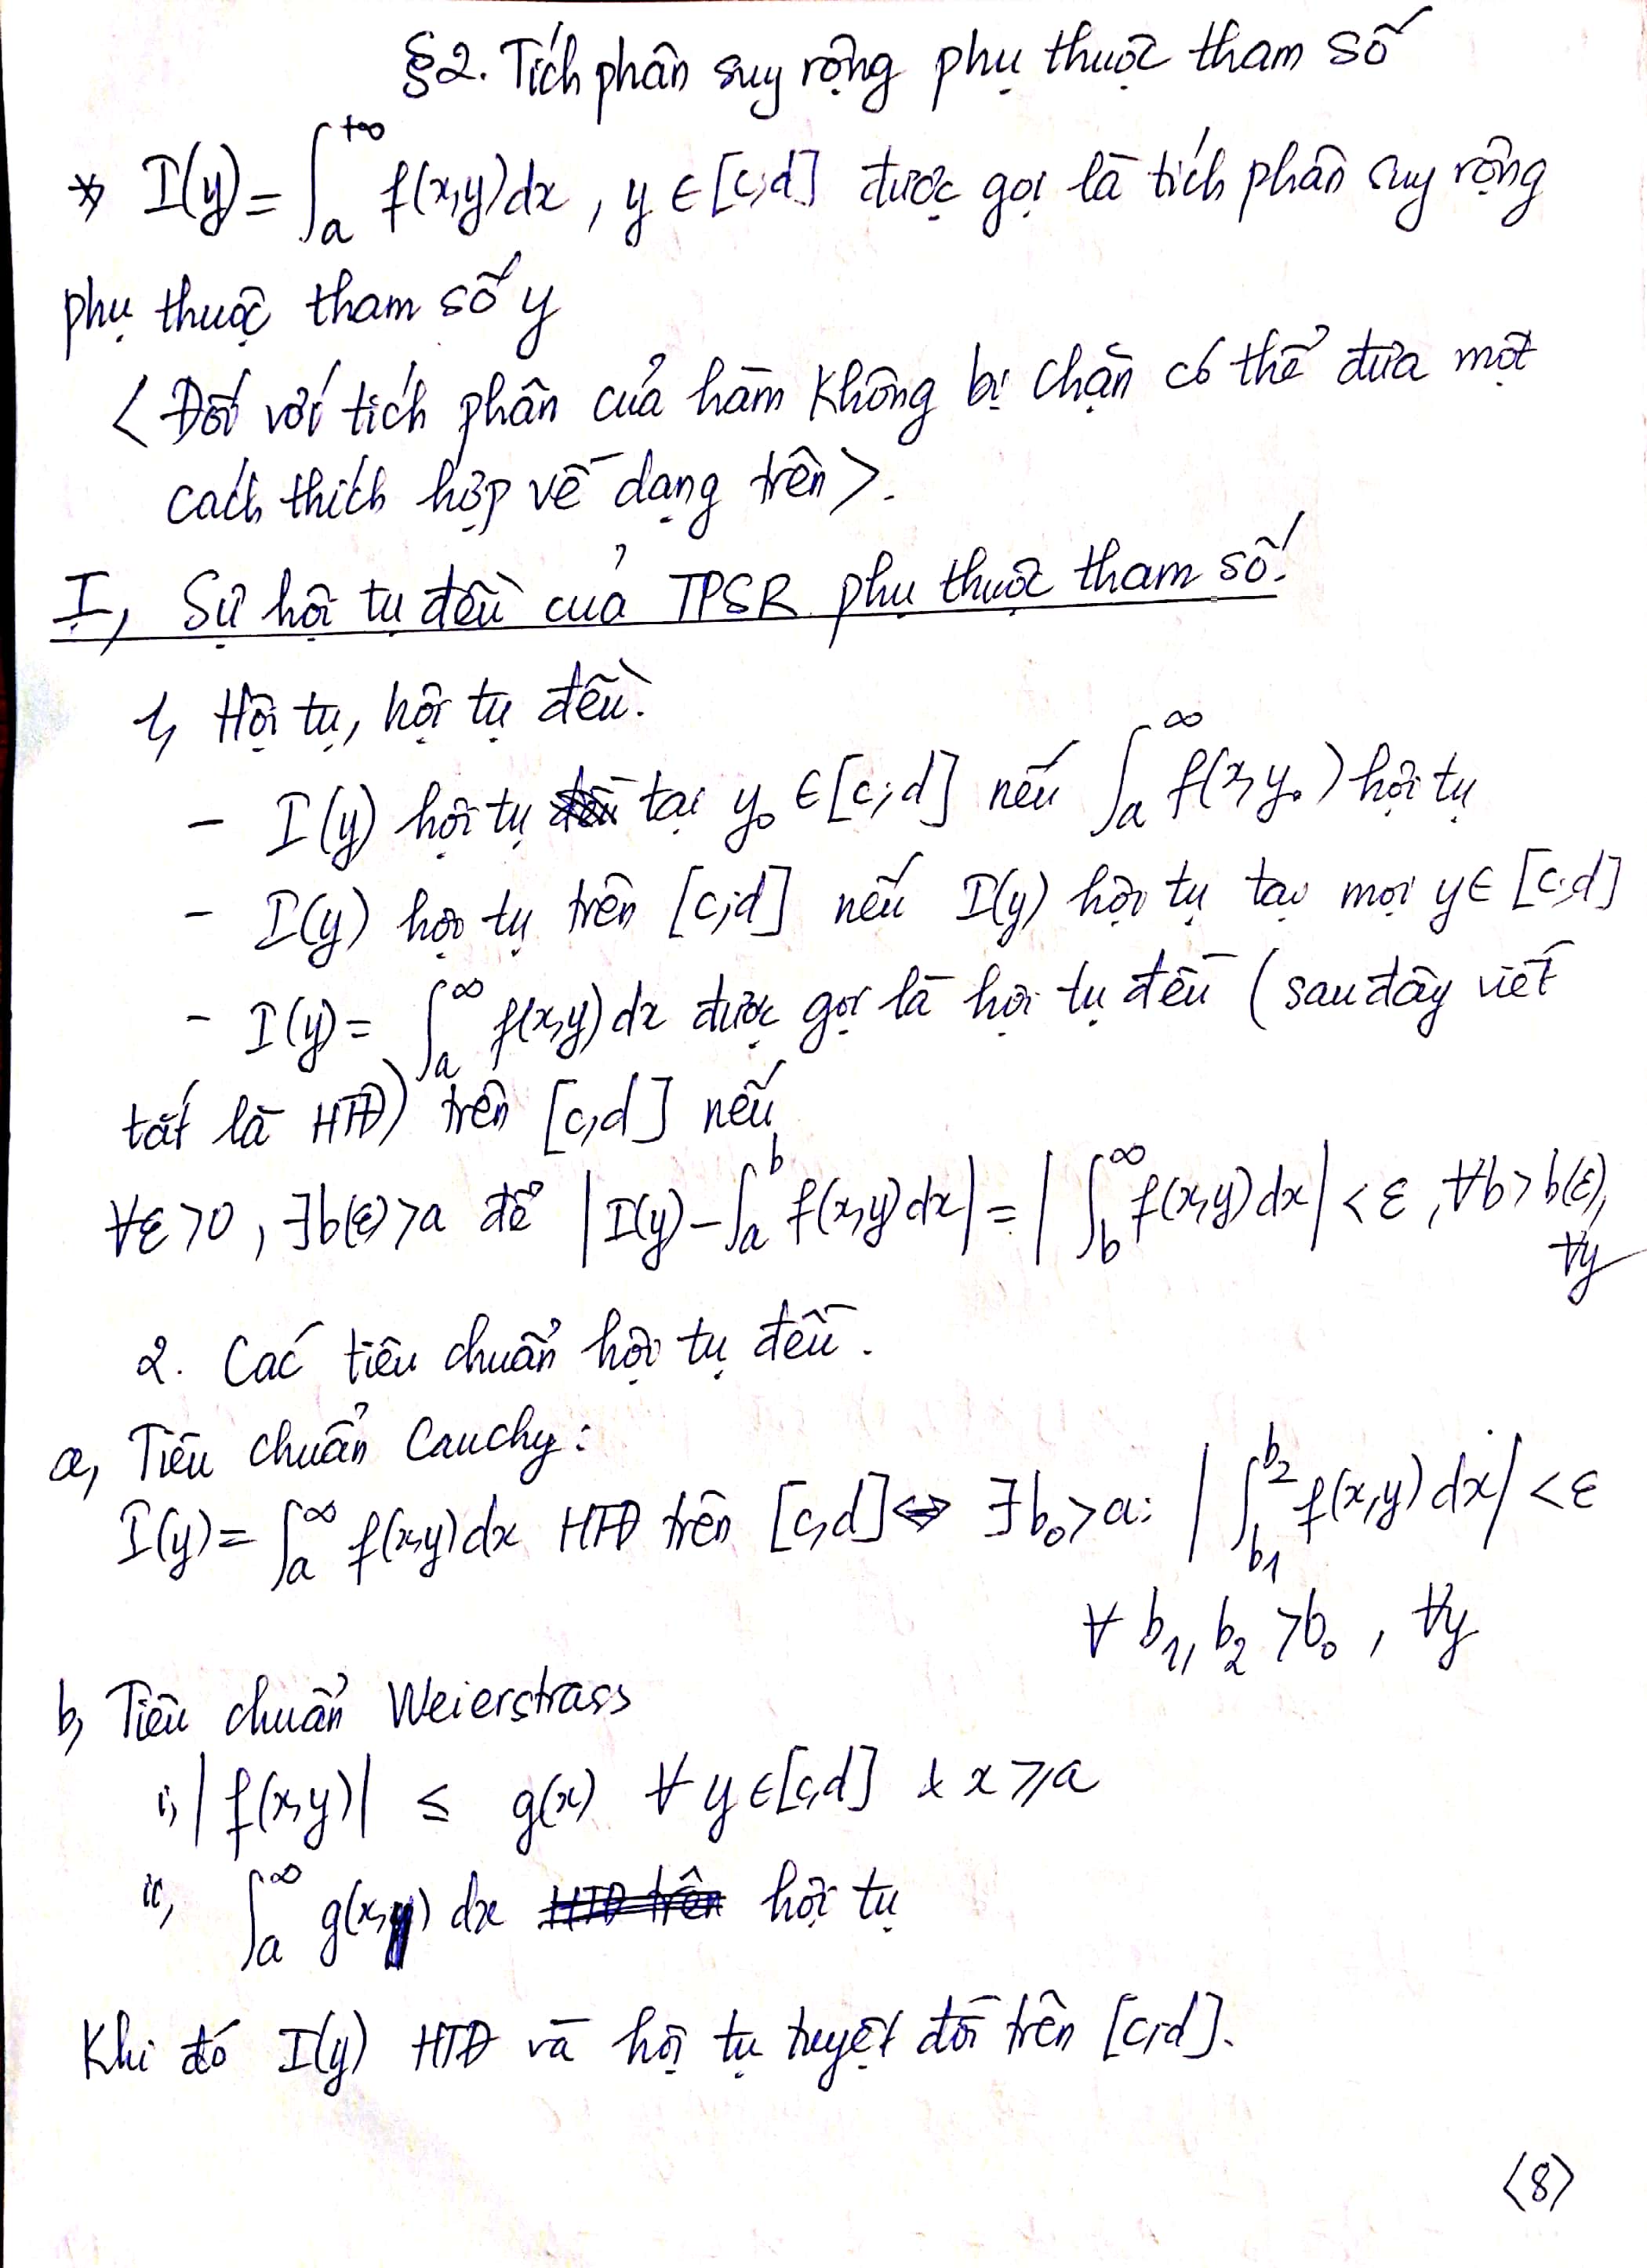 §2. Tích phân suy rộng phụ thuộc tham số
* I(y) = ∫_a^{+∞} f(x,y)dx , y ∈ [c;d] được gọi là tích phân suy rộng
phụ thuộc tham số y
< Đối với tích phân của hàm không bị chặn có thể đưa một
cách thích hợp về dạng trên >.
I, Sự hội tụ đều của TPSR phụ thuộc tham số.
1, Hội tụ, hội tụ đều.
- I(y) hội tụ tại y₀ ∈ [c;d] nếu ∫_a^∞ f(x,y₀) hội tụ
- I(y) hội tụ trên [c;d] nếu I(y) hội tụ tại mọi y ∈ [c;d]
- I(y) = ∫_a^∞ f(x,y)dx được gọi là hội tụ đều (sau đây viết
tắt là HTĐ) trên [c,d] nếu
∀ε>0, ∃b(ε)>a để |I(y) - ∫_a^b f(x,y)dx| = |∫_b^∞ f(x,y)dx| < ε, ∀b>b(ε),
∀y
2. Các tiêu chuẩn hội tụ đều.
a, Tiêu chuẩn Cauchy:
I(y) = ∫_a^∞ f(x,y)dx HTĐ trên [c,d] ⇔ ∃b₀>a: |∫_{b₁}^{b₂} f(x,y)dx| < ε
∀ b₁, b₂ > b₀ , ∀y
b, Tiêu chuẩn Weierstrass
i, |f(x,y)| ≤ g(x) ∀ y ∈ [c,d] & x ⩾ a
ii, ∫_a^∞ g(x) dx hội tụ
Khi đó I(y) HTĐ và hội tụ tuyệt đối trên [c,d].
<8>